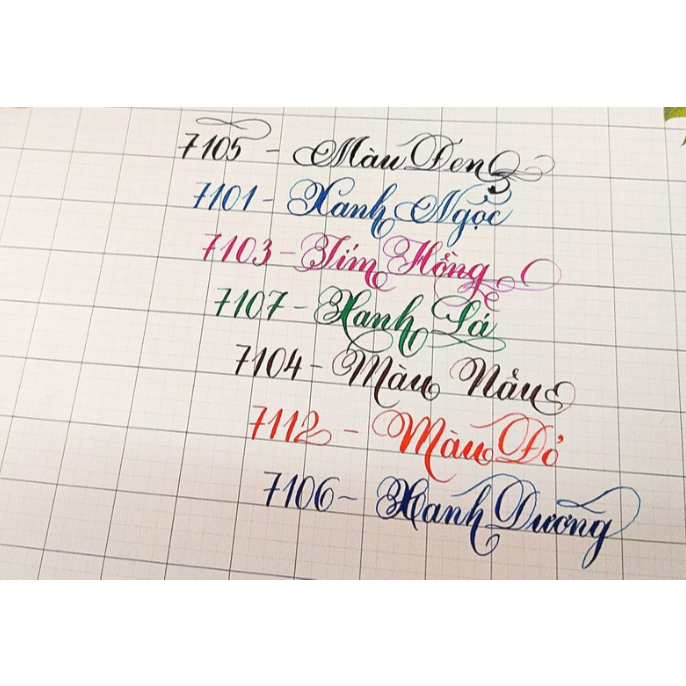 7105 - Màu Đen
7101 - Xanh Ngọc
7103 - Tím Hồng
7107 - Xanh Lá
7104 - Màu Nâu
7112 - Màu Đỏ
7106 - Xanh Dương